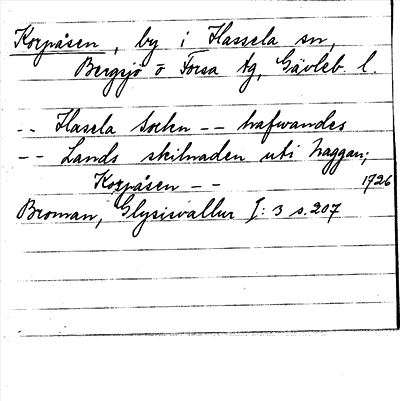 Korpåsen, by i Hassela sn,
Bergsjö o Forsa tg, Gävleb. l.
-- Hasela Socken -- hafwandes
-- Lands skilnaden uti haggan;
Korpåsen -- 1726
Broman, Glysisvallur I: 3 s. 207